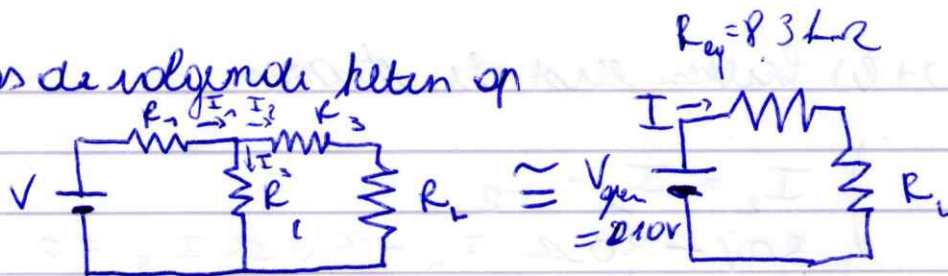 R_eq = 83 kΩ
s de volgende keten op
R₁ I₁ I₃ R₃ I →
V I₂ R R_L ≅ V_open R_L
= 210V